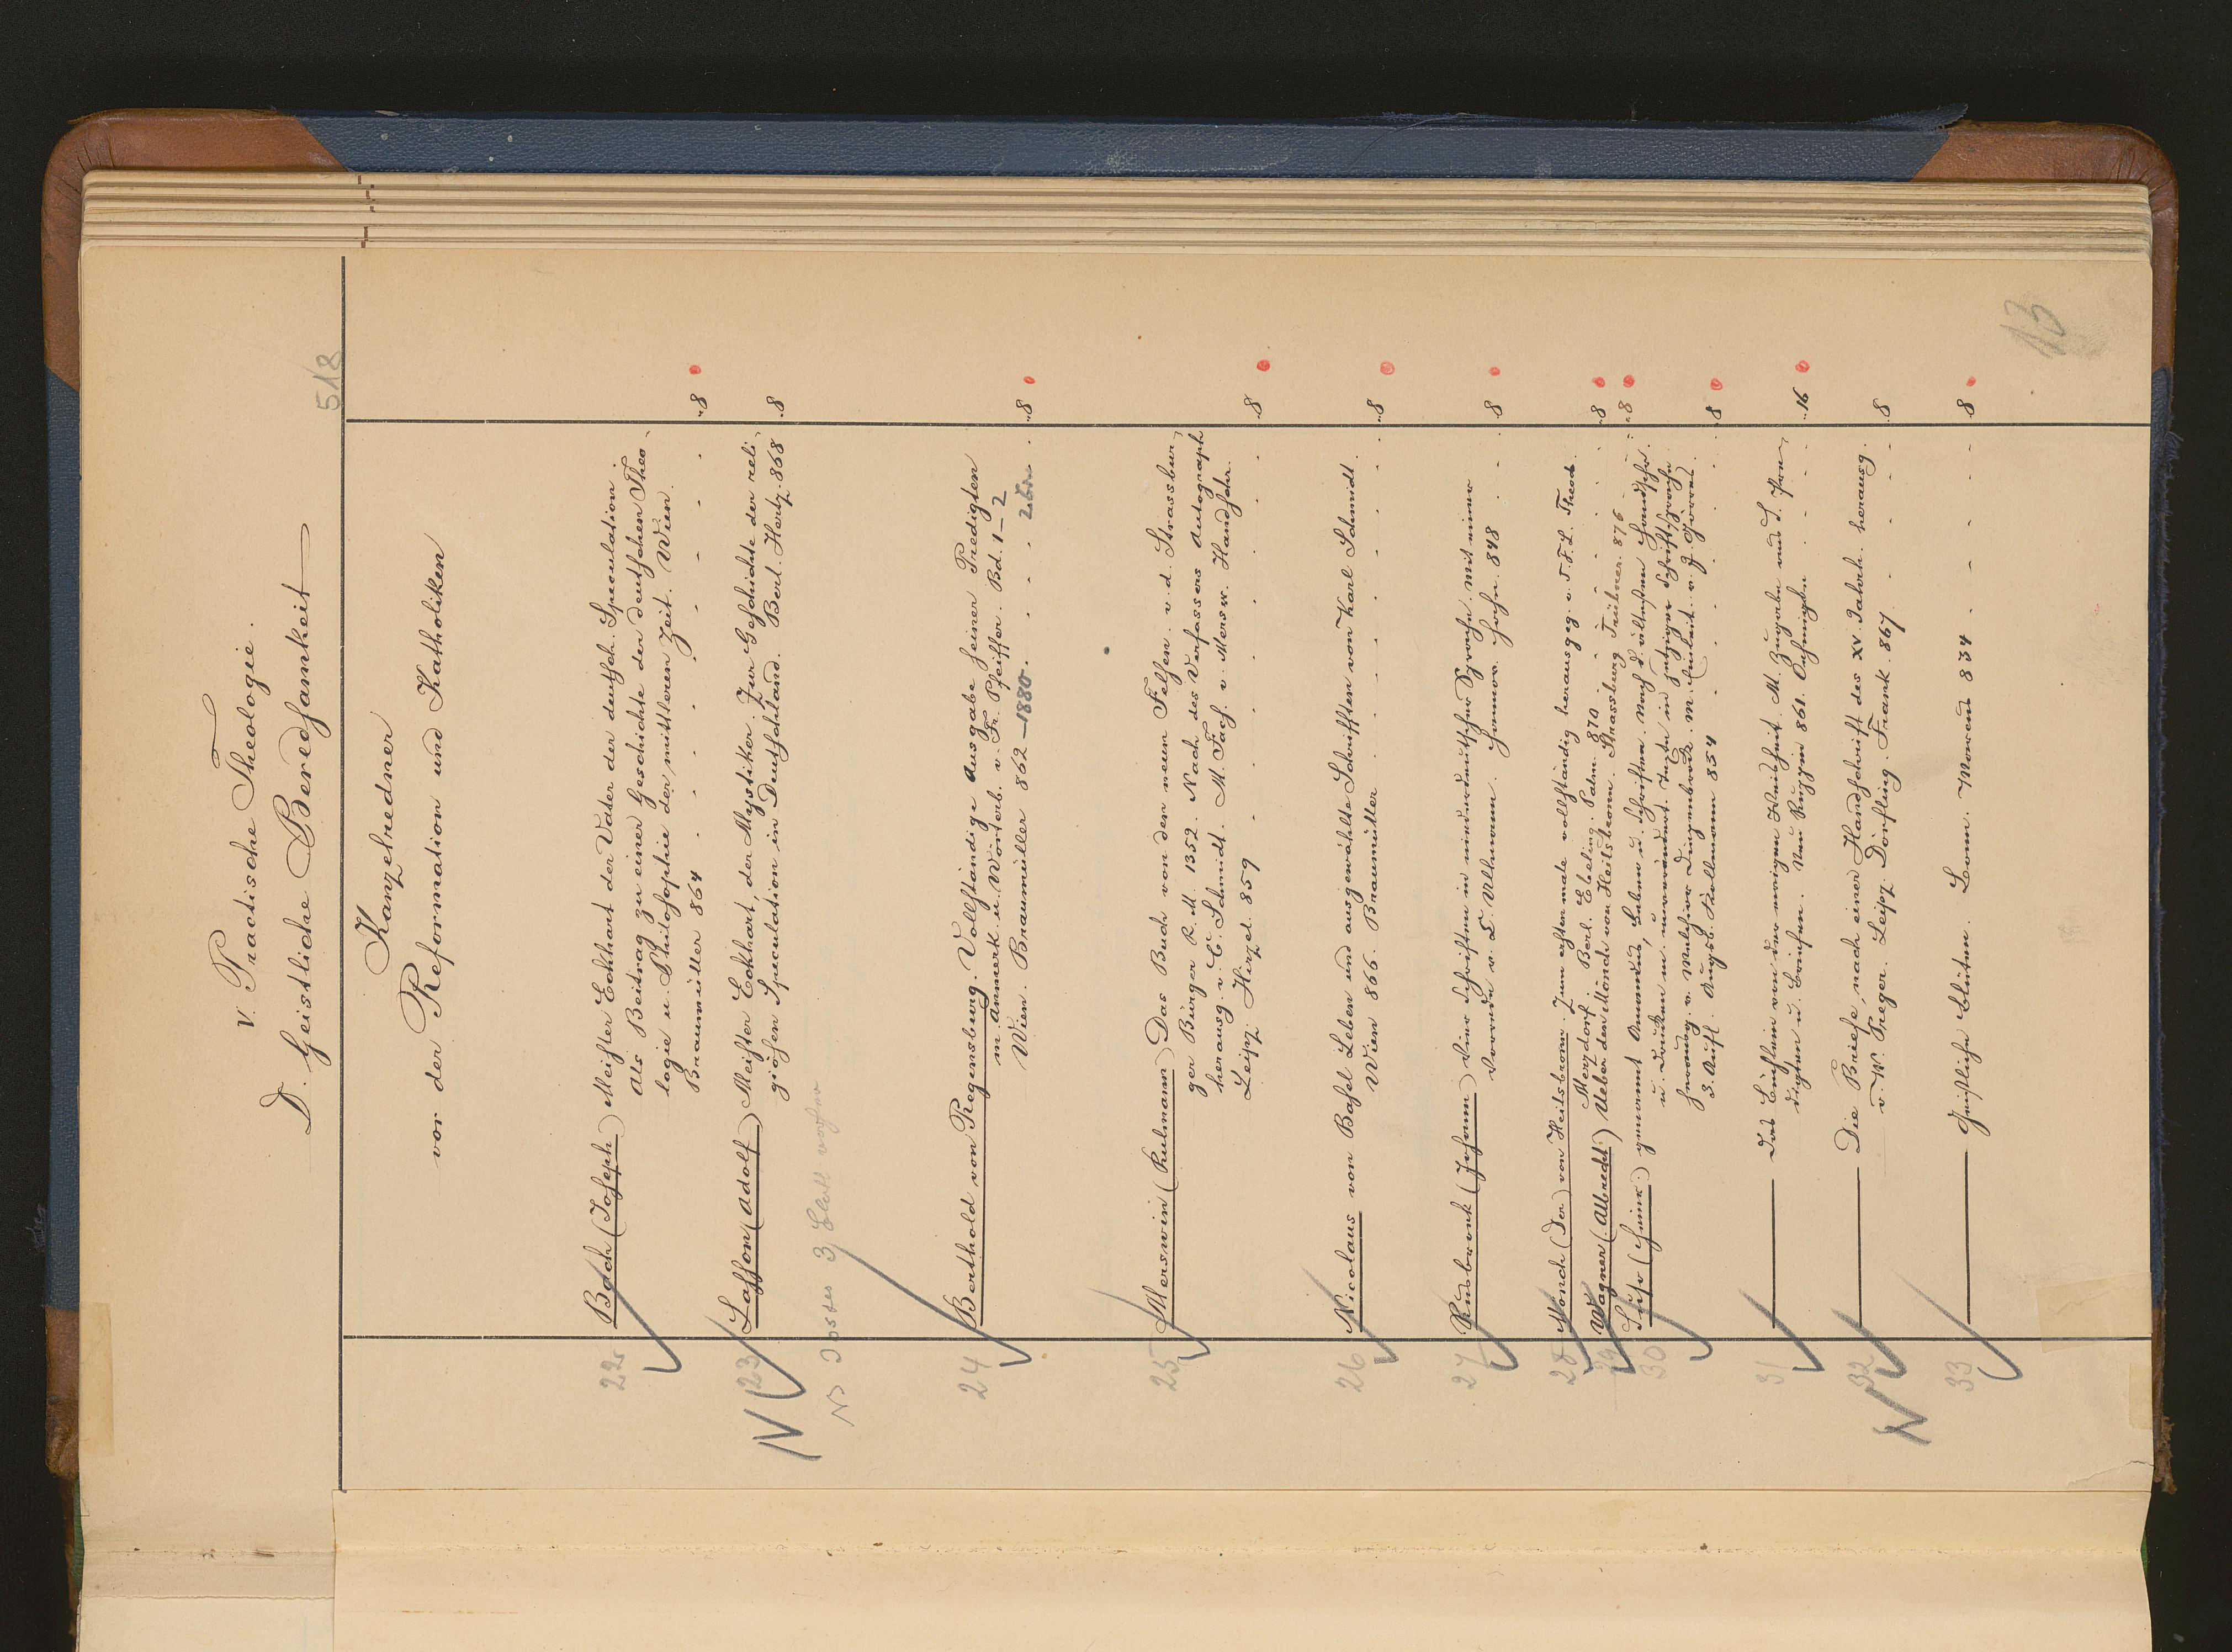 518
V. Practische Theologie.
D. Geistliche Beredsamkeit
Kanzelredner
vor der Reformation und Katholiken
22 Bach (Joseph) Meister Eckhart der Vater der deutsch. Speculation.
Als Beitrag zu einer Geschichte der deutschen Theo-
logie u. Philosophie der mittleren Zeit. Wien.
Braumüller 864 . . . . . . . 8
N 23 Lasson (Adolf) Meister Eckhart, der Mystiker. Zur Geschichte der reli-
giösen Speculation in Deutschland. Berl. Hertz. 868 8
3 Blatt vorher
24 Berthold von Regensburg. Vollständige Ausgabe seiner Predigten
m. Anmerk. u. Wörterb. v. Fr. Pfeiffer. Bd. 1–2
Wien. Braumüller 862–1880. . . . 8
25 Merswin (Rulmann) Das Buch von den neun Felsen. v. d. Strassbur-
ger Bürger R. M. 1352. Nach des Verfassers Autograph
herausg. v. C. Schmidt. M. Facs. v. Mersw. Handschr.
Leipz. Hirzel. 859 . . . . . . 8
26 Nicolaus von Basel Leben und ausgewählte Schriften von Karl Schmidt.
Wien 866. Braumüller . . . . . . 8
27 Rusbroek (Johann) Vier Schriften in niederdeutscher Sprache. Mit einer
Vorrede v. C. Ullmann. Hannov. Hahn. 848 . . 8
28 Mönch (Der) von Heilsbronn. Zum ersten male vollständig herausgeg. v. J. F. L. Theod.
Merzdorf. Berl. Ebeling. Palm. 870 . . . . 8
29 Wagner (Albrecht) Ueber den Mönch von Heilsbronn. Strassburg Trübner. 876 . 8
30 Suso (Heinr.) genannt Amandus, Leben u. Schriften. Nach d. ältesten Handschr.
u. Drucken m. unverändert. Texte in jetziger Schriftsprache
herausg. v. Melchior Diepenbrock. M. Einleit. v. J. Görres.
3. Aufl. Augsb. Kollmann 854 . . . . . 8
31 —— Das Büchlein von der ewigen Weisheit. M. Zugabe aus S. Pre-
digten u. Briefen. Neu Ruppin 861. Oehmigke . . . 16
N 32 —— Die Briefe, nach einer Handschrift des XV. Jahrh. herausg.
v. W. Preger. Leipz. Dörfling. Frank. 867. . . . 8
33 —— Geistliche Blüten. Bonn. Marcus 834 . . . . 8
13